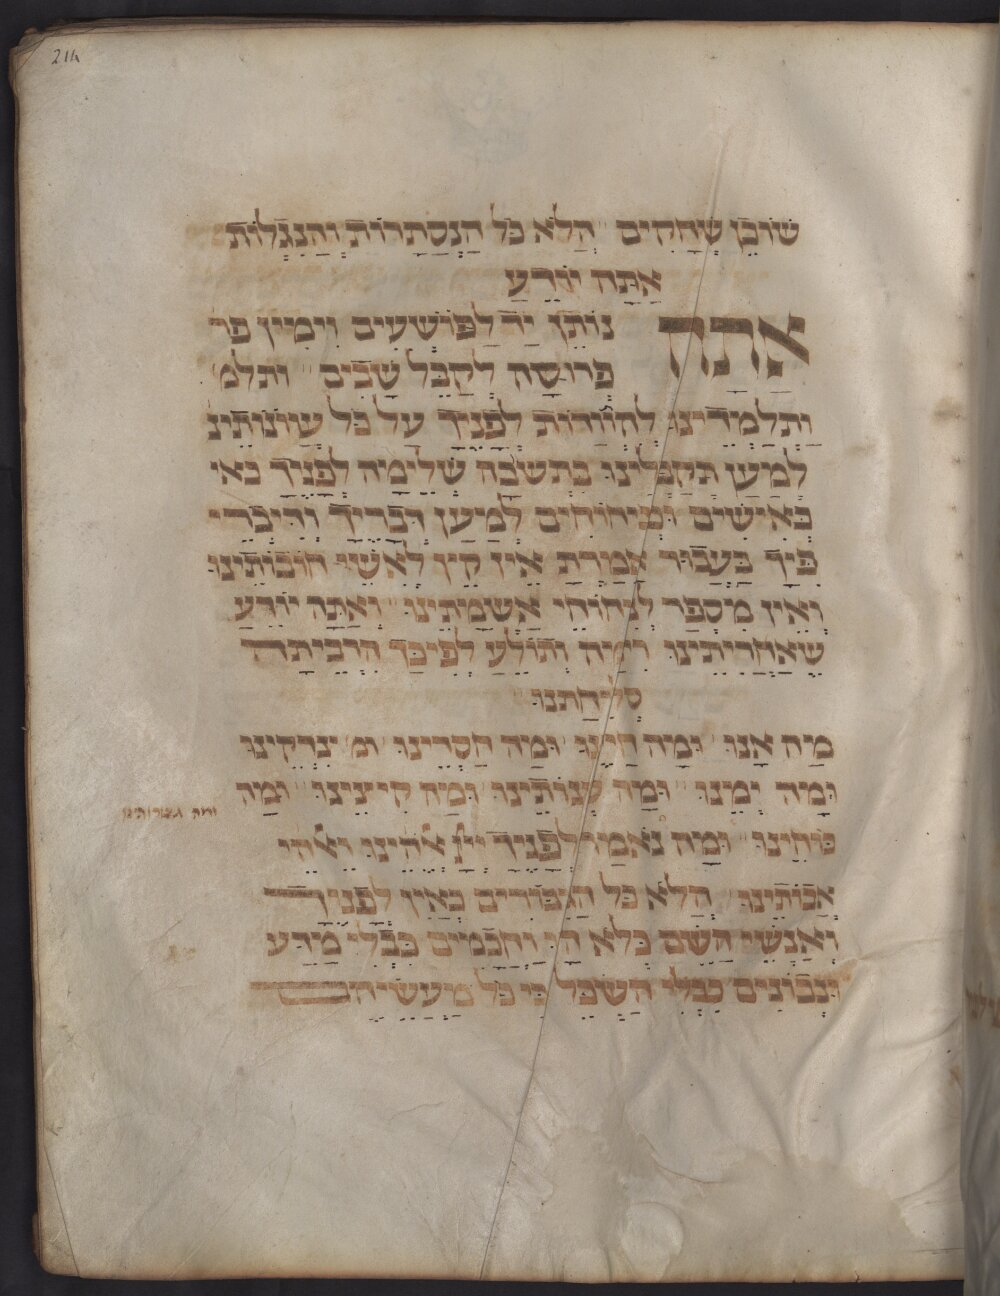 214
שוכן שחקים הלא כל הנסתרות והנגלות
אתה יודע
אתה נותן יד לפושעים וימין פר
פרושה לקבל שבים ותלמ
ותלמדינו להוודות לפניך על כל עונותינ
למען תקבלינו בתשובה שלימה לפניך כאי
כאישים וכניחוחים למען דבריך ודיברי
כיך בעבור אמרת אין קץ לאשיי חובותינו
ואין מספר לניחוחי אשמתינו ואתה יודע
שאחריתינו רמיה ותולע לפיכך הרביתה
סליחתנו
מה אנו ומה חיינו ומה חסדינו ומ צדקינו
ומה ימנו ומה ענותינו ומה קיצינו ומה
ומה גבורותינו
כוחינו ומה נאמר לפניך ייי אלהינו ואלהי
אבותינו הלא כל הגבורים כאין לפניך
ואנשי השם כלא היו וחכמים כבלי מדע
ונבונים כבלי השכל כי כל מעשיה